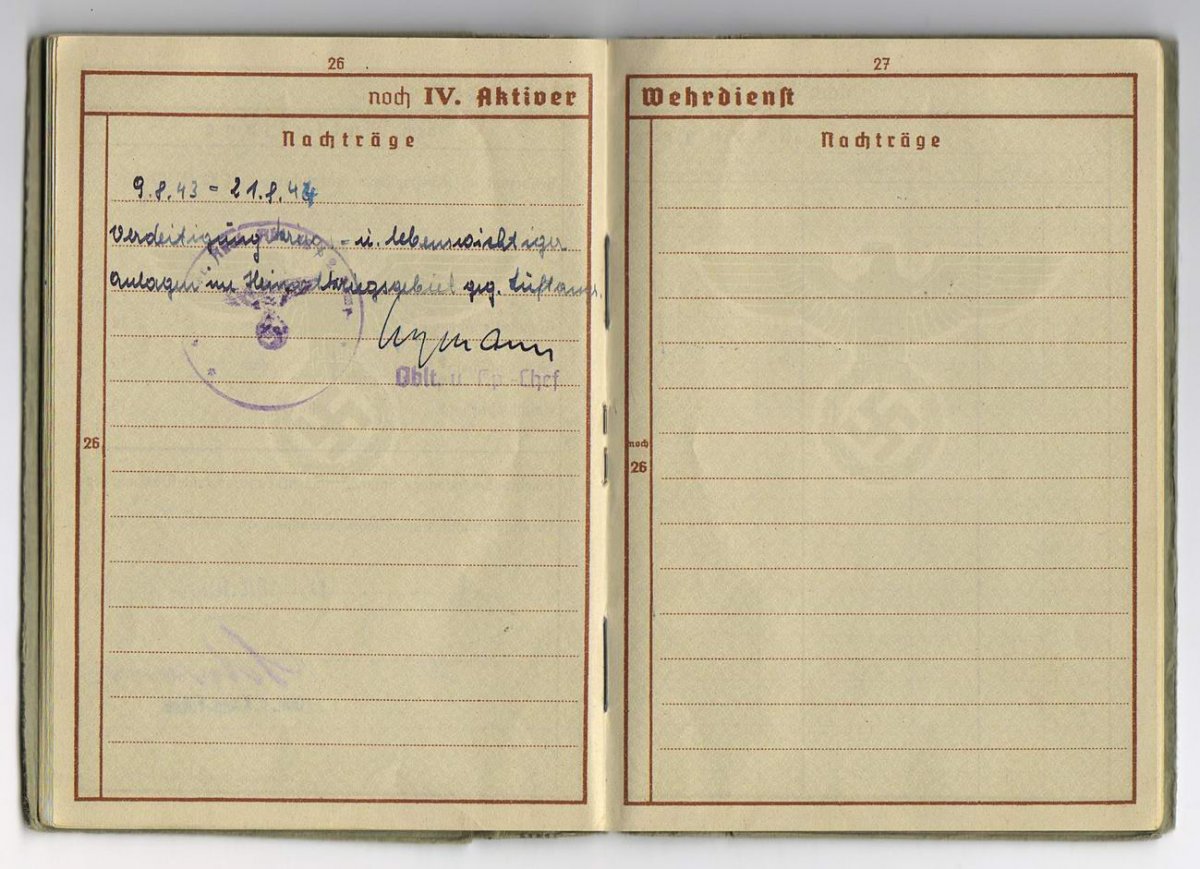 26
noch IV. Aktiver
Nachträge
9.8.43 - 21.8.44
Verdeitigung - u. lebenswichtiger
Anlagen im Heimatkriegsgebiet geg. Luftangr.
Oblt. u. Cp.-Chef
26
27
Wehrdienst
Nachträge
noch
26